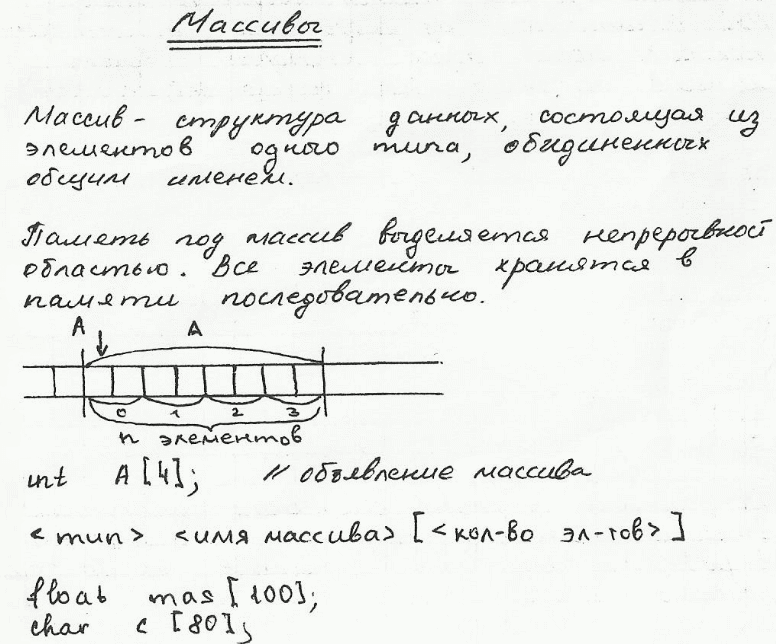 Массивы
Массив - структура данных, состоящая из
элементов одного типа, обидиненных
общим именем.
Память под массив выделяется непрерывной
областью. Все элементы хранятся в
памяти последовательно.
A A
0 1 2 3
n элементов
int A[4]; // объявление массива
<тип> <имя массива> [<кол-во эл-тов>]
float mas[100];
char c[80];